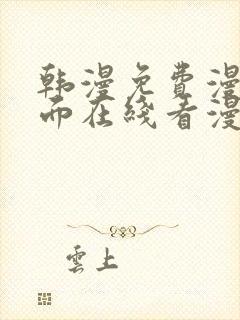 韩漫免费漫
而在线看漫
雲上